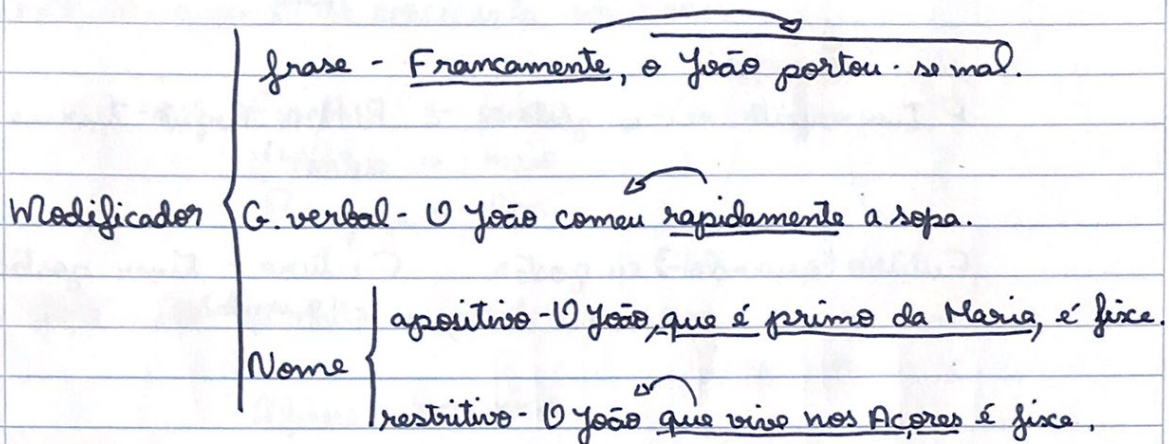 frase - Francamente, o João portou-se mal.
Modificador G. verbal - O João comeu rapidamente a sopa.
apositivo - O João, que é primo da Maria, é fixe.
Nome
restritivo - O João que vive nos Açores é fixe.